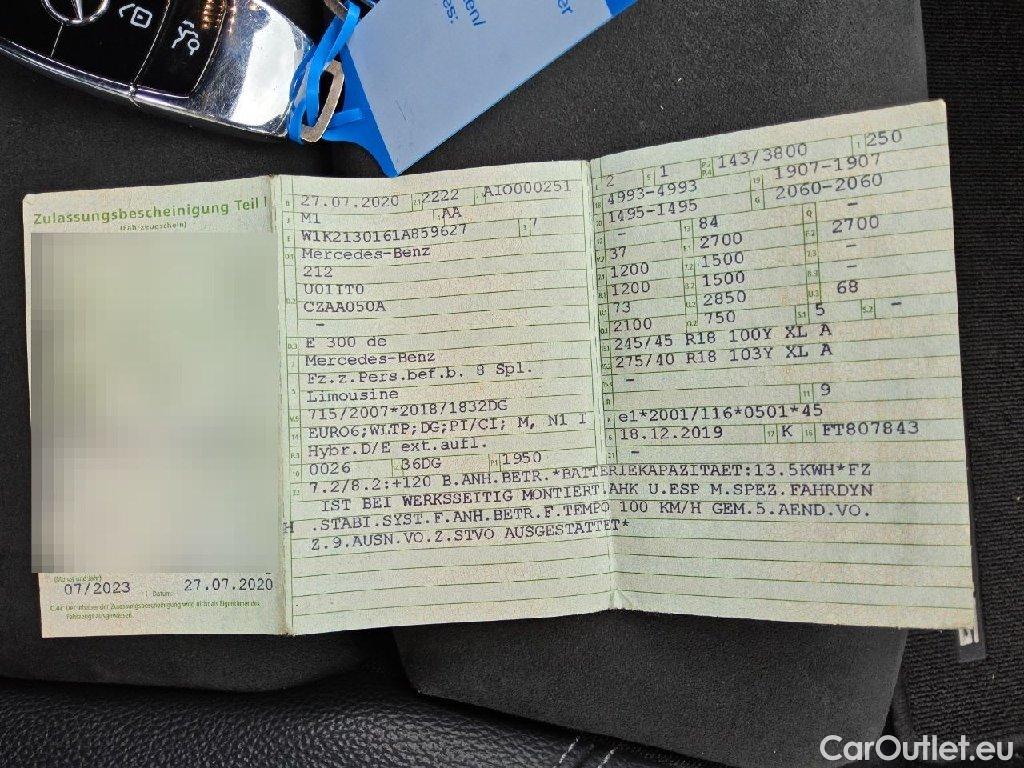 en/
es:
er
Zulassungsbescheinigung Teil I
(Fahrzeugschein)
07/2023
Datum: 27.07.2020
27.07.2020 2222 AIO000251
M1 AA
W1K2130161A859627 7
Mercedes-Benz
212
U01IT0
CZAA050A
-
E 300 de
Mercedes-Benz
Fz.z.Pers.bef.b. 8 Spl.
Limousine
715/2007*2018/1832DG
EURO6;WLTP;DG;PI/CI; M, N1 I
Hybr.D/E ext.aufl.
0026 36DG 1950
7.2/8.2:+120 B.ANH.BETR.*BATTERIEKAPAZITAET:13.5KWH*FZ
IST BEI WERKSSEITIG MONTIERT.AHK U.ESP M.SPEZ.FAHRDYN
.STABI.SYST.F.ANH.BETR.F.TEMPO 100 KM/H GEM.5.AEND.VO.
Z.9.AUSN.VO.Z.STVO AUSGESTATTET*
2 1 143/3800 250
4993-4993 1907-1907
1495-1495 2060-2060
- 84 -
37 2700 2700
1200 1500 -
1200 1500 -
73 2850 68
2100 750 5 -
245/45 R18 100Y XL A
275/40 R18 103Y XL A
-
- 9
e1*2001/116*0501*45
18.12.2019 K FT807843
-
CarOutlet.eu